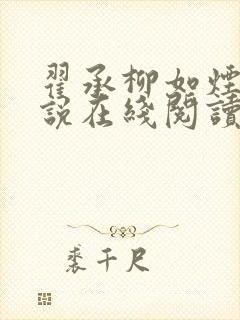 翟承柳如煙
說在綫閱讀
裘千尺